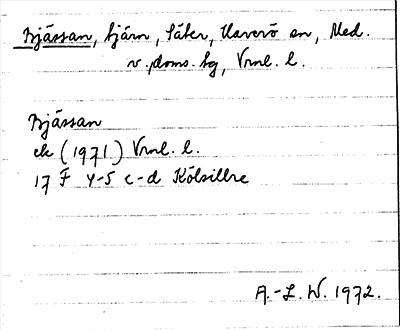 Bjässan, tjärn, Säter, Haverö sn, Med.
v. doms. hg, Vrnl. l.
Bjässan
ek (1971) Vrnl. l.
17 F 4-5 c-d Kölsillre
A.-L. W. 1972.